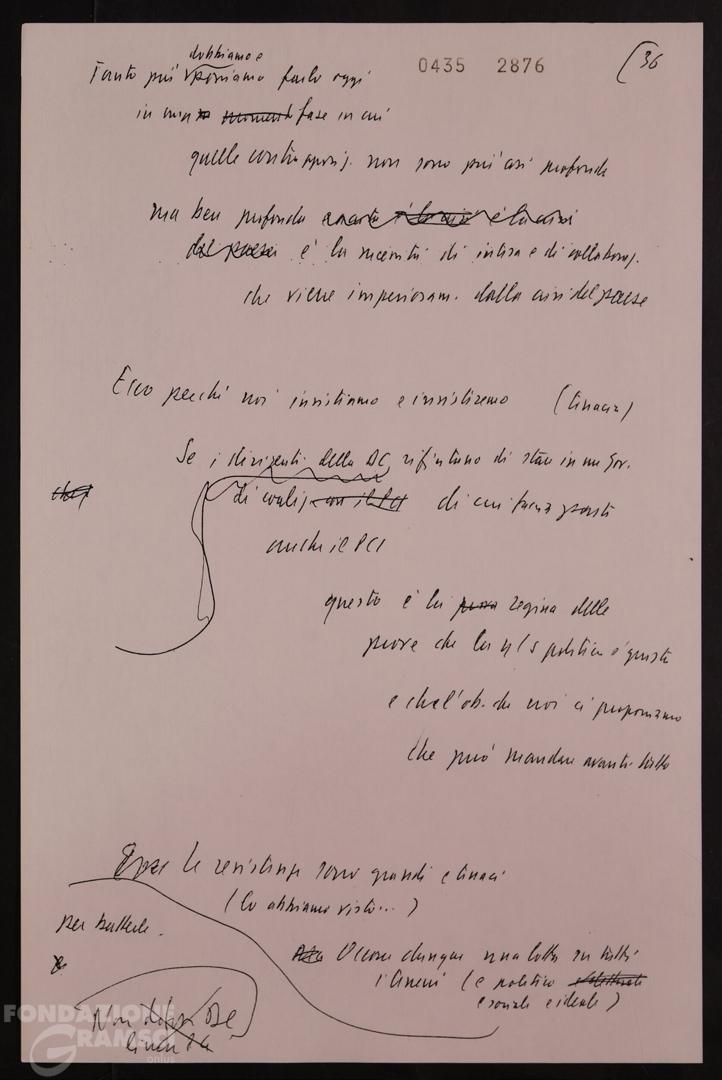 0435 2876
36
dobbiamo e
Tanto più possiamo farlo oggi
in una fase in cui
quelle contrapposiz. non sono più così profonde
ma ben profonda
del paese è la necessità di intesa e di collaboraz.
che viene imperiosam. dalla crisi del paese
Ecco perché noi insistiamo e insisteremo (tenacia)
Se i dirigenti della DC rifiutano di stare in un gov.
di coaliz. con il PCI di cui faccia parte
anche il PCI
questo è la regina delle
prove che la n/s politica è giusta
e che l'ob. che noi ci proponiamo
che può mandare avanti tutto
Le resistenze sono grandi e tenaci
(lo abbiamo visto...)
per batterle.
Occorre dunque una lotta su tutti
i terreni (e politico
e sociale e ideale)
Non
FONDAZIONE
GRAMSCI
onlus